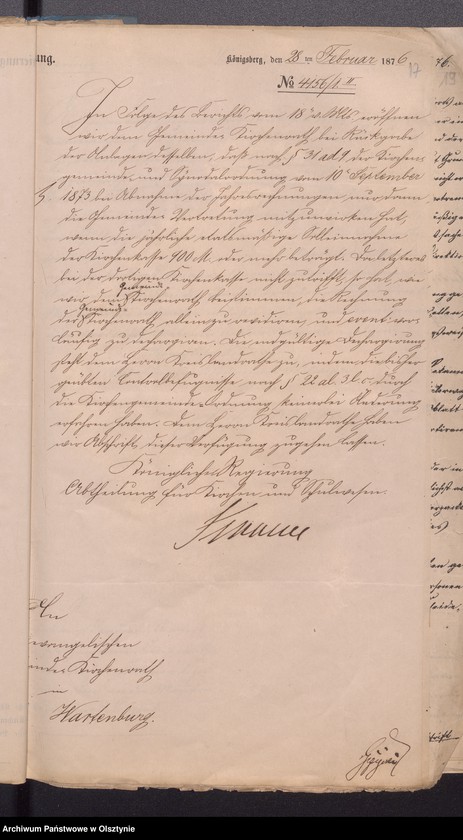 ung.
Königsberg, den 28ten Februar 1876
17
No 4156/2. III.
In Folge des Berichts vom 18ten v. Mts eröffnen
wir dem Gemeinde Kirchenrath bei Rückgabe
der Anlagen desselben, daß nach § 31 ad 9 der Kirchen-
gemeinde und Synodalordnung vom 10ten September
1873 bei Abnahme der Jahresrechnungen nur dann
die Gemeinde Vertretung mitzuwirken hat,
wenn die jährliche etatsmäßige Solleinnahme
der Kirchenkasse 900 M. oder mehr beträgt. Da letzteres
bei der dortigen Kirchenkasse nicht zutrifft, so hat, wie
wir dem Gemeinde Kirchenrath bestimmen, die Rechnung
d Gemeinde Kirchenrath allein zu revidiren und event. vor-
läufig zu dechargiren. Die endgültige Dechargirung
steht dem Herrn Kreislandrath zu, indem die bisher
geübten Controlbefugnisse nach § 22 al. 3 l. c. durch
die Kirchengemeinde-Ordnung keinerlei Änderung
erfahren haben. Dem Herrn Kreislandrathe haben
wir Abschrift dieser Verfügung zugehen lassen.
Königliche Regierung
Abtheilung für Kirchen und Schulwesen.
An
evangelischen
Kirchenrath
in
Wartenburg.
Archiwum Państwowe w Olsztynie